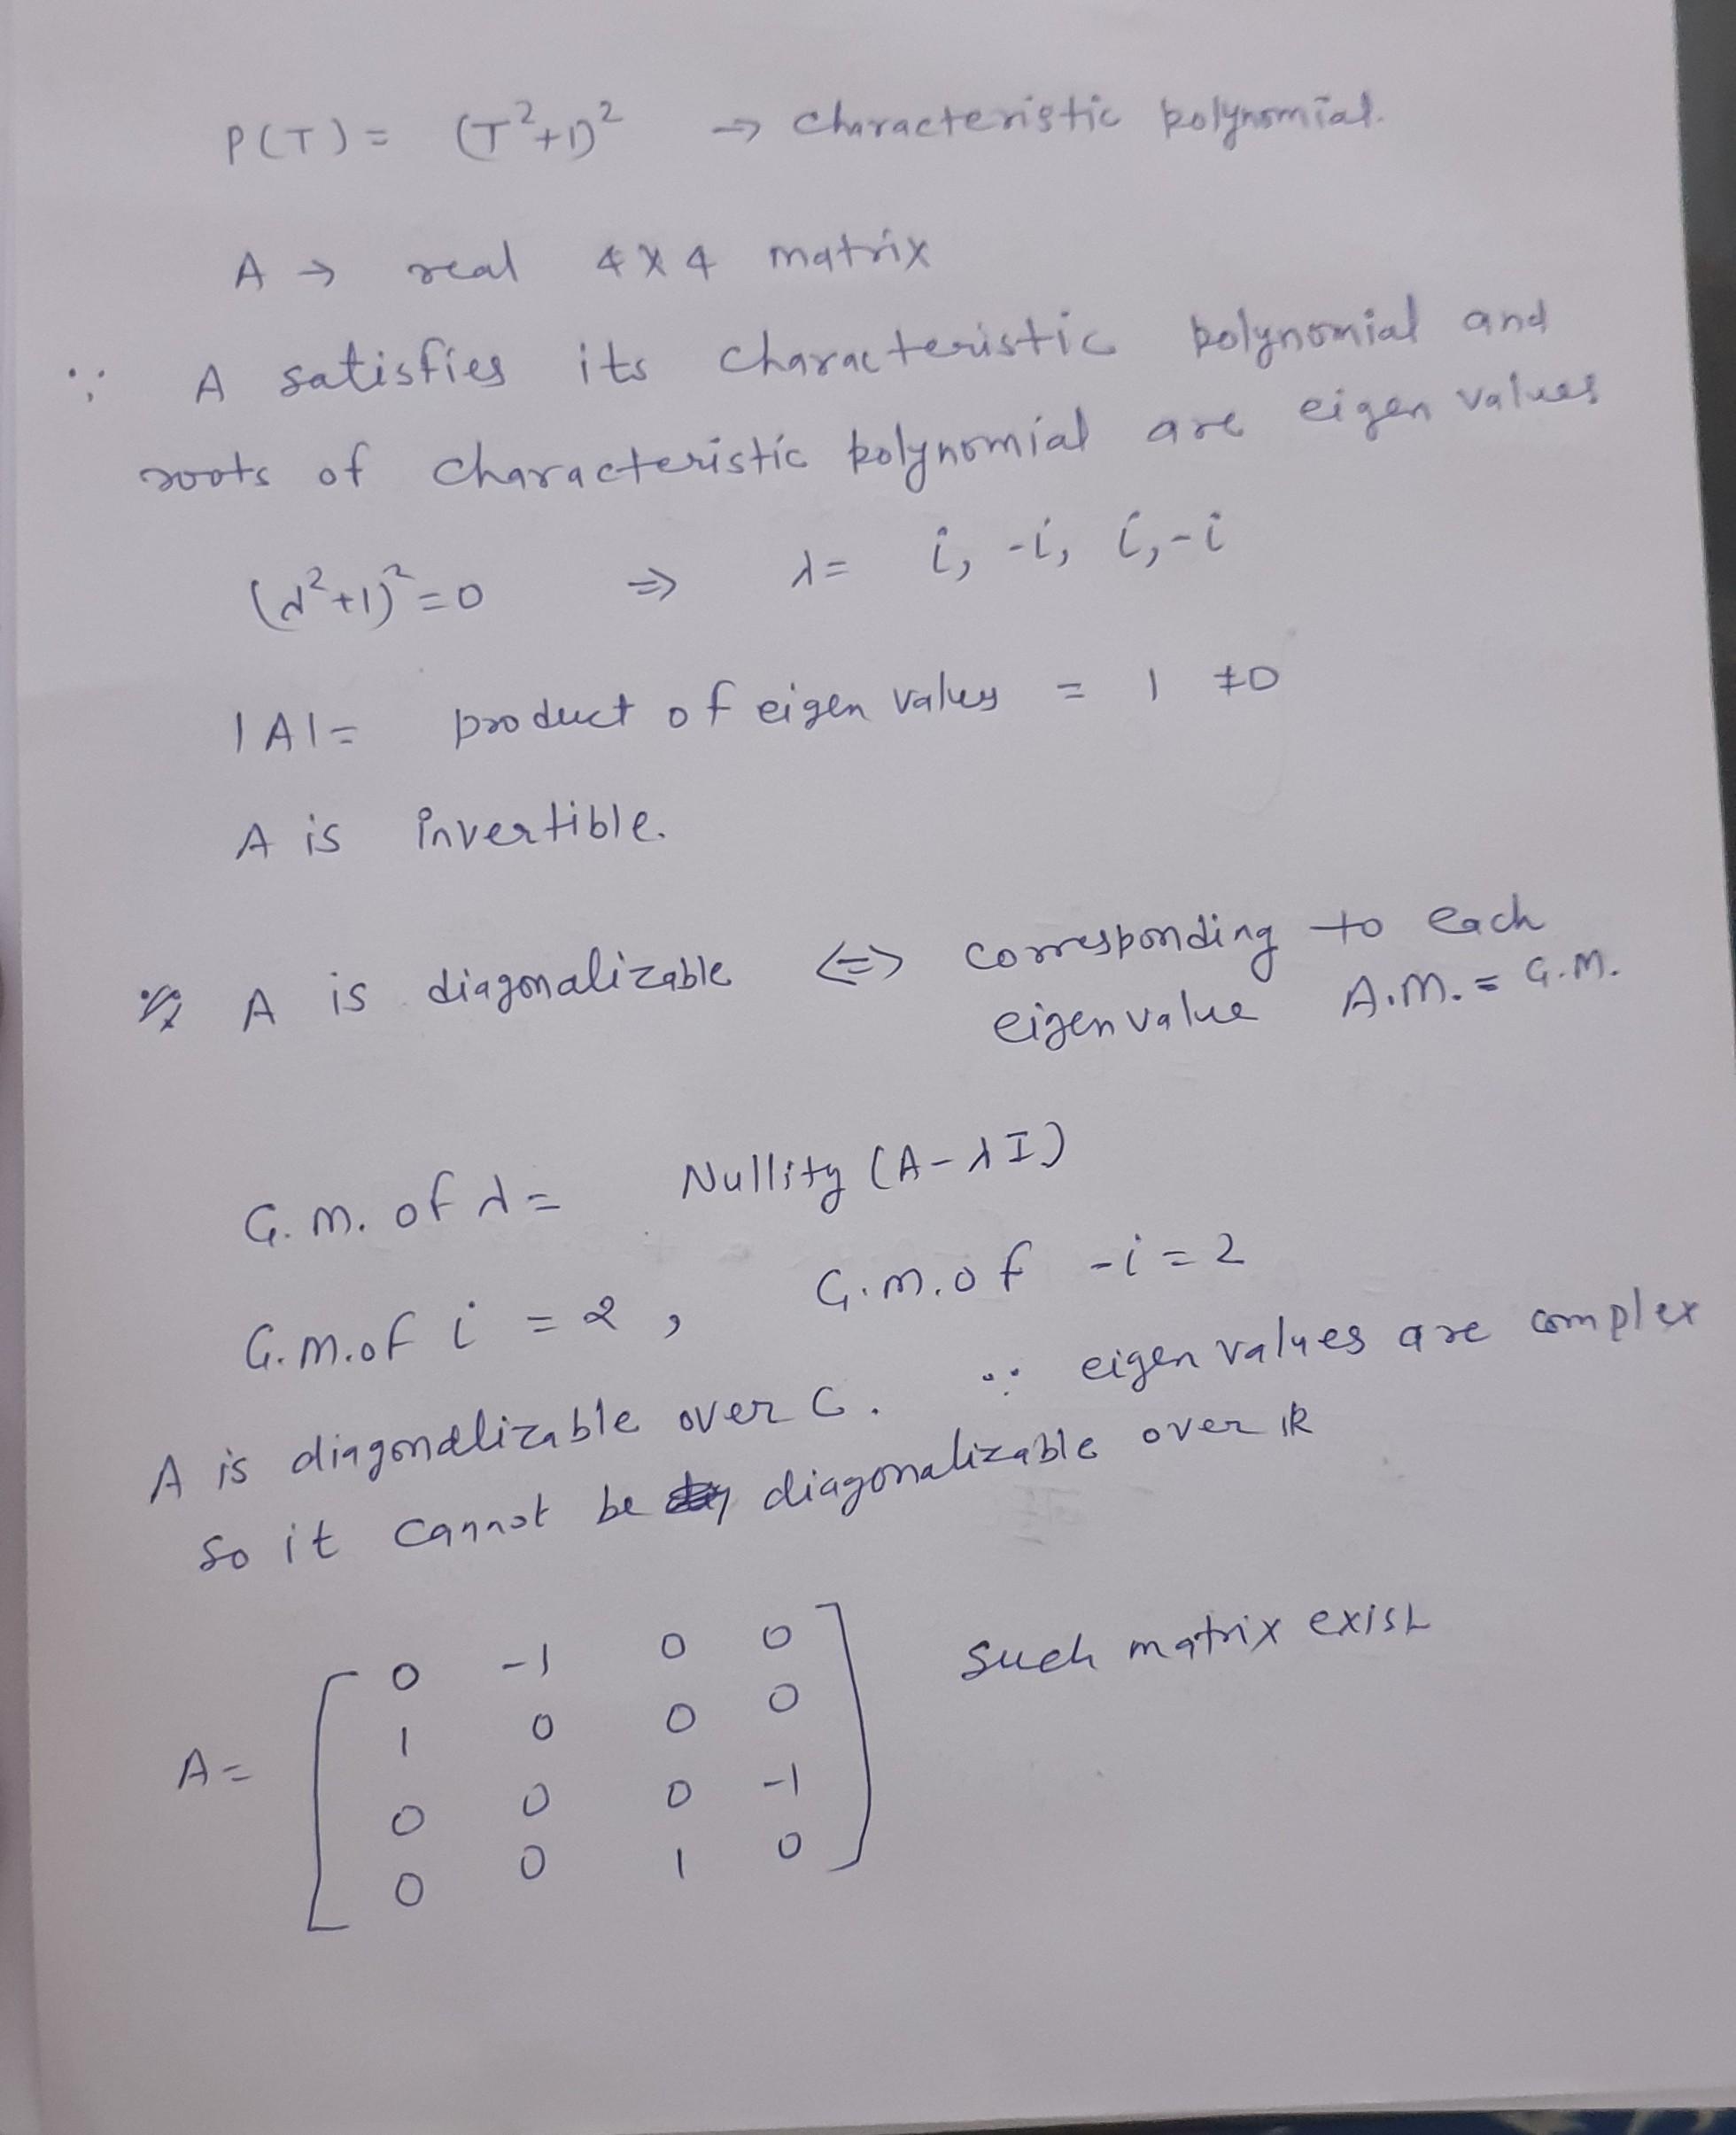 P(T) = (T²+1)² → characteristic polynomial.
A → real 4×4 matrix
∵ A satisfies its characteristic polynomial and
roots of characteristic polynomial are eigen values
(λ²+1)²=0 ⇒ λ= i, -i, i, -i
|A| = product of eigen values = 1 ≠0
A is invertible.
A is diagonalizable <=> corresponding to each
eigenvalue A.M. = G.M.
G.M. of λ = Nullity (A-λI)
G.M. of i = 2, G.M. of -i = 2
A is diagonalizable over C. ∵ eigen values are complex
so it cannot be diagonalizable over IR
A = [ 0 -1 0 0 such matrix exist
1 0 0 0
0 0 0 -1
0 0 1 0 ]